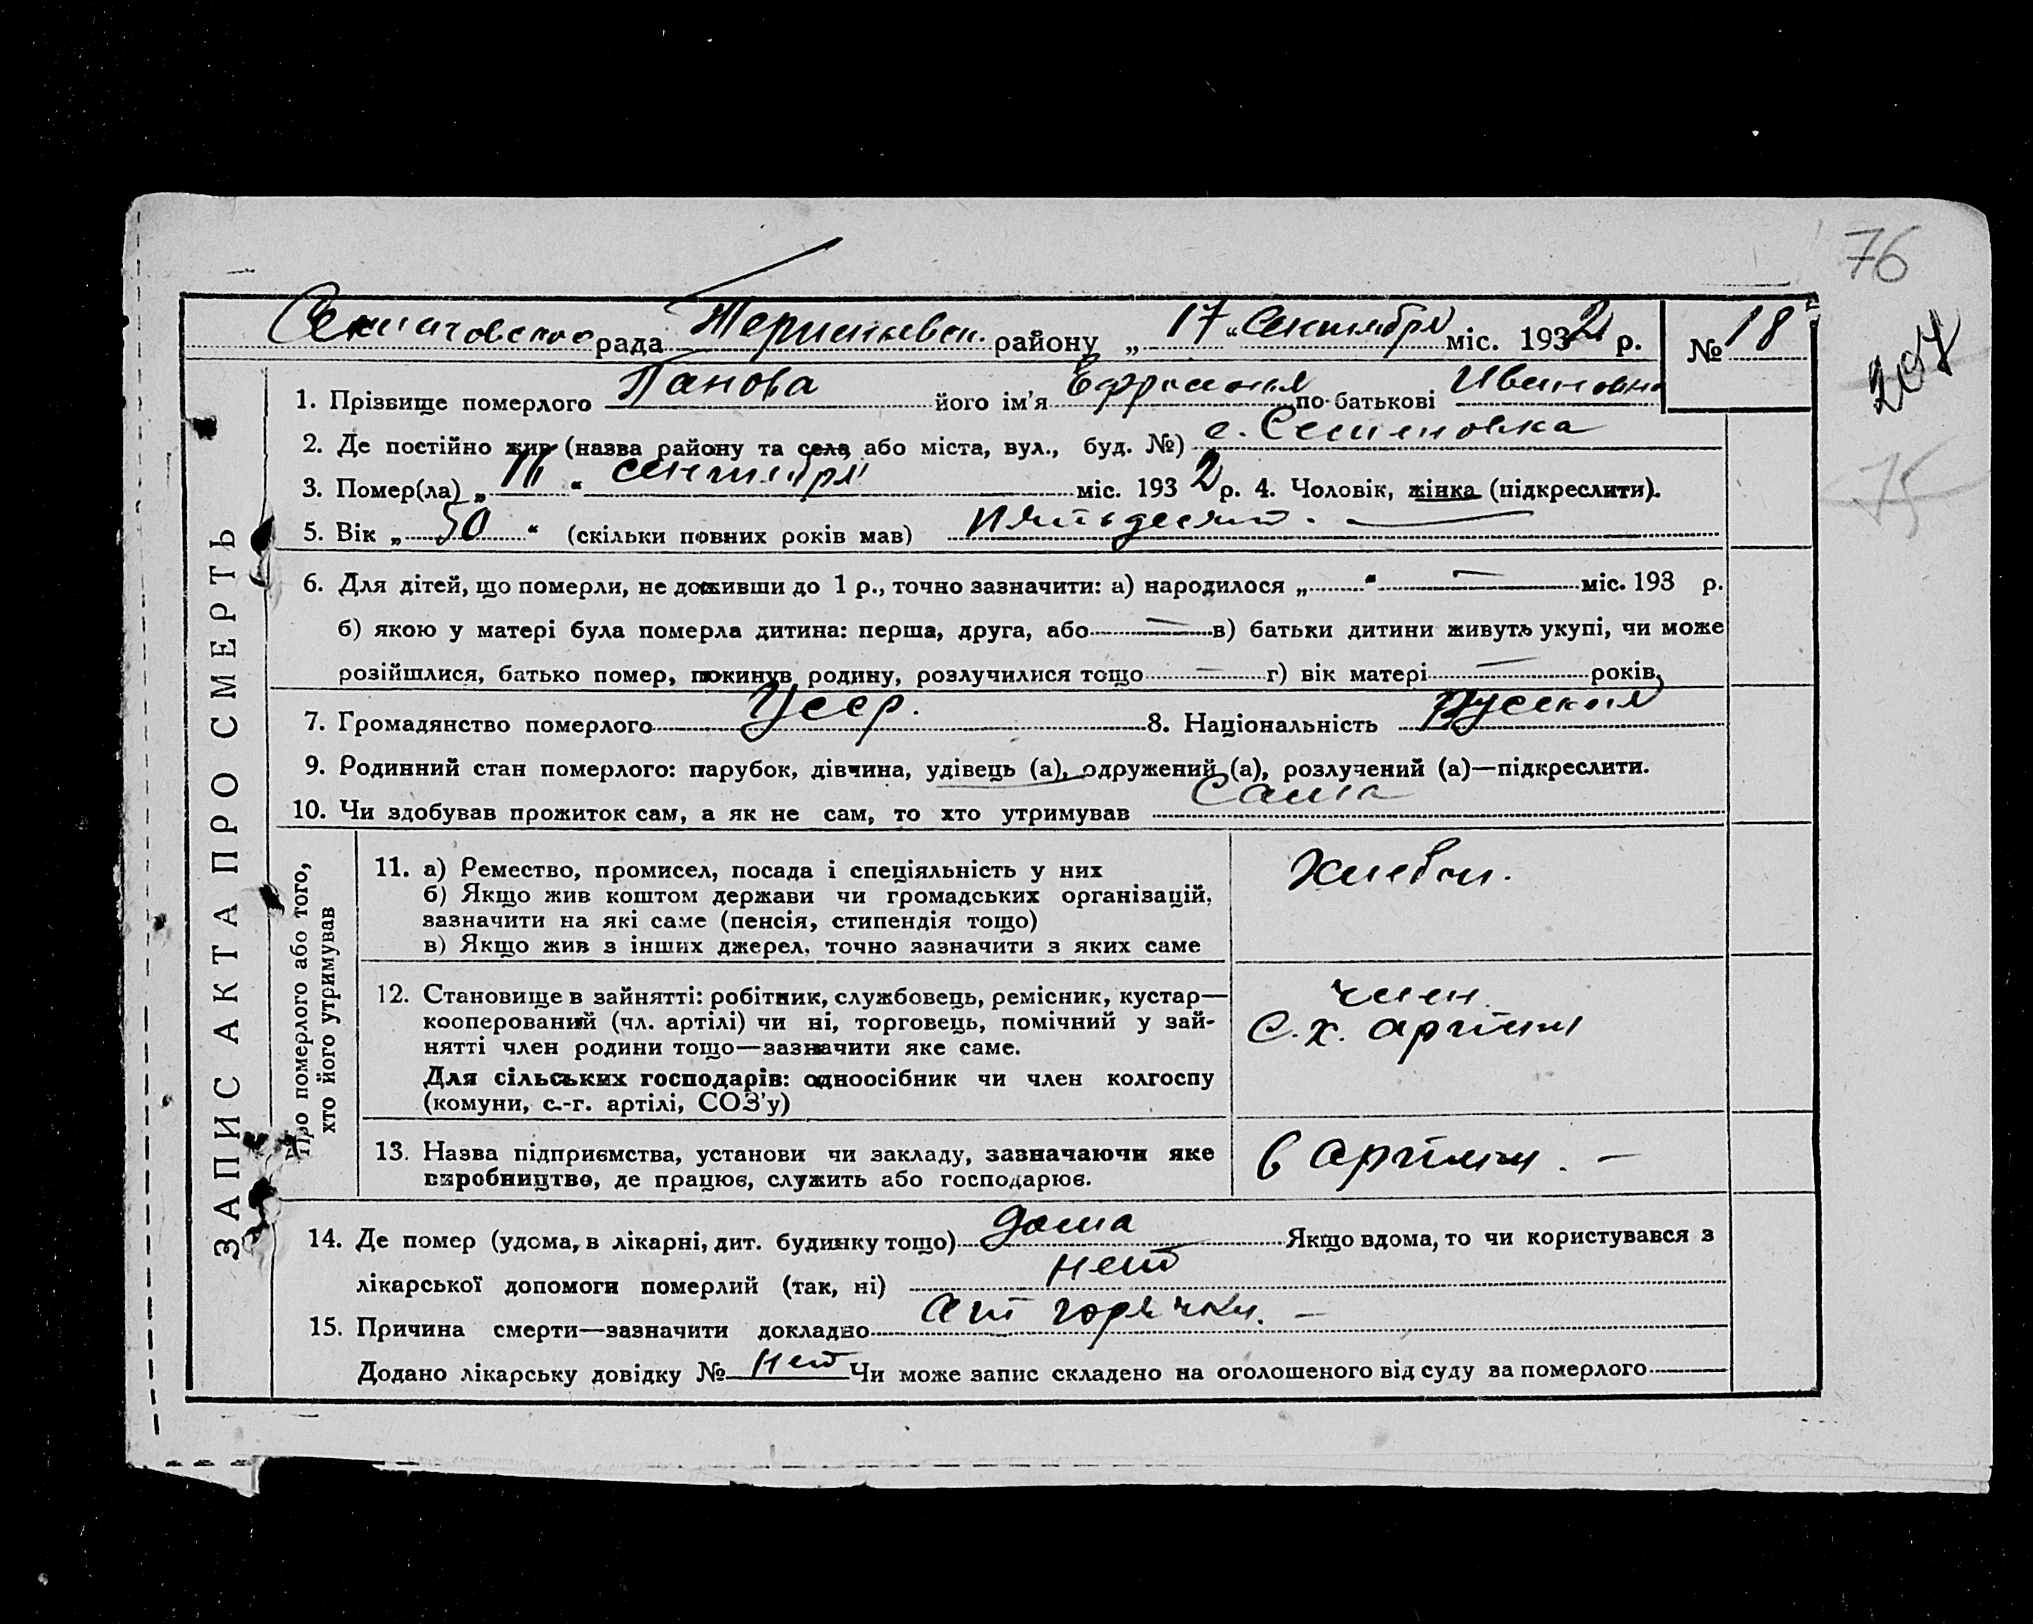 76
рада Терпеньевск. району „ 17 " Сентября міс. 1932 р. № 18
207
1. Прізвище померлого Панова його ім'я Ефросинья по-батькові Ивановна
2. Де постійно жив (назва району та села, або міста, вул., буд. №) с. Семеновка
3. Помер(ла) „ " сентября міс. 1932 р. 4. Чоловік, жінка (підкреслити).
75
5. Вік „ 50 " (скільки повних років мав) Пятьдесят. —
6. Для дітей, що померли, не доживши до 1 р., точно зазначити: а) народилося „ " — міс. 193 р.
б) якою у матері була померла дитина: перша, друга, або — в) батьки дитини живуть укупі, чи може
розійшлися, батько помер, покинув родину, розлучилися тощо — г) вік матері — років,
7. Громадянство померлого Усср. 8. Національність Русская
9. Родинний стан померлого: парубок, дівчина, удівець (а), одружений (а), розлучений (а)—підкреслити.
10. Чи здобував прожиток сам, а як не сам, то хто утримував Сама
ЗАПИС АКТА ПРО СМЕРТЬ
Про померлого або того,
хто його утримував
11. а) Ремество, промисел, посада і спеціяльність у них
б) Якщо жив коштом держави чи громадських організацій,
зазначити на які саме (пенсія, стипендія тощо)
в) Якщо жив з інших джерел, точно зазначити з яких саме
Хлебоп.
12. Становище в зайнятті: робітник, службовець, ремісник, кустар—
кооперований (чл. артілі) чи ні, торговець, помічний у зай-
нятті член родини тощо—зазначити яке саме.
Для сільських господарів: одноосібник чи член колгоспу
(комуни, с.-г. артілі, СОЗ'у)
член
С.х. артели
13. Назва підприємства, установи чи закладу, зазначаючи яке
виробництво, де працює, служить або господарює.
в артели. —
14. Де помер (удома, в лікарні, дит. будинку тощо) дома Якщо вдома, то чи користувався з
лікарської допомоги померлий (так, ні) нет
15. Причина смерти—зазначити докладно от горячки. —
Додано лікарську довідку № нет Чи може запис складено на оголошеного від суду за померлого